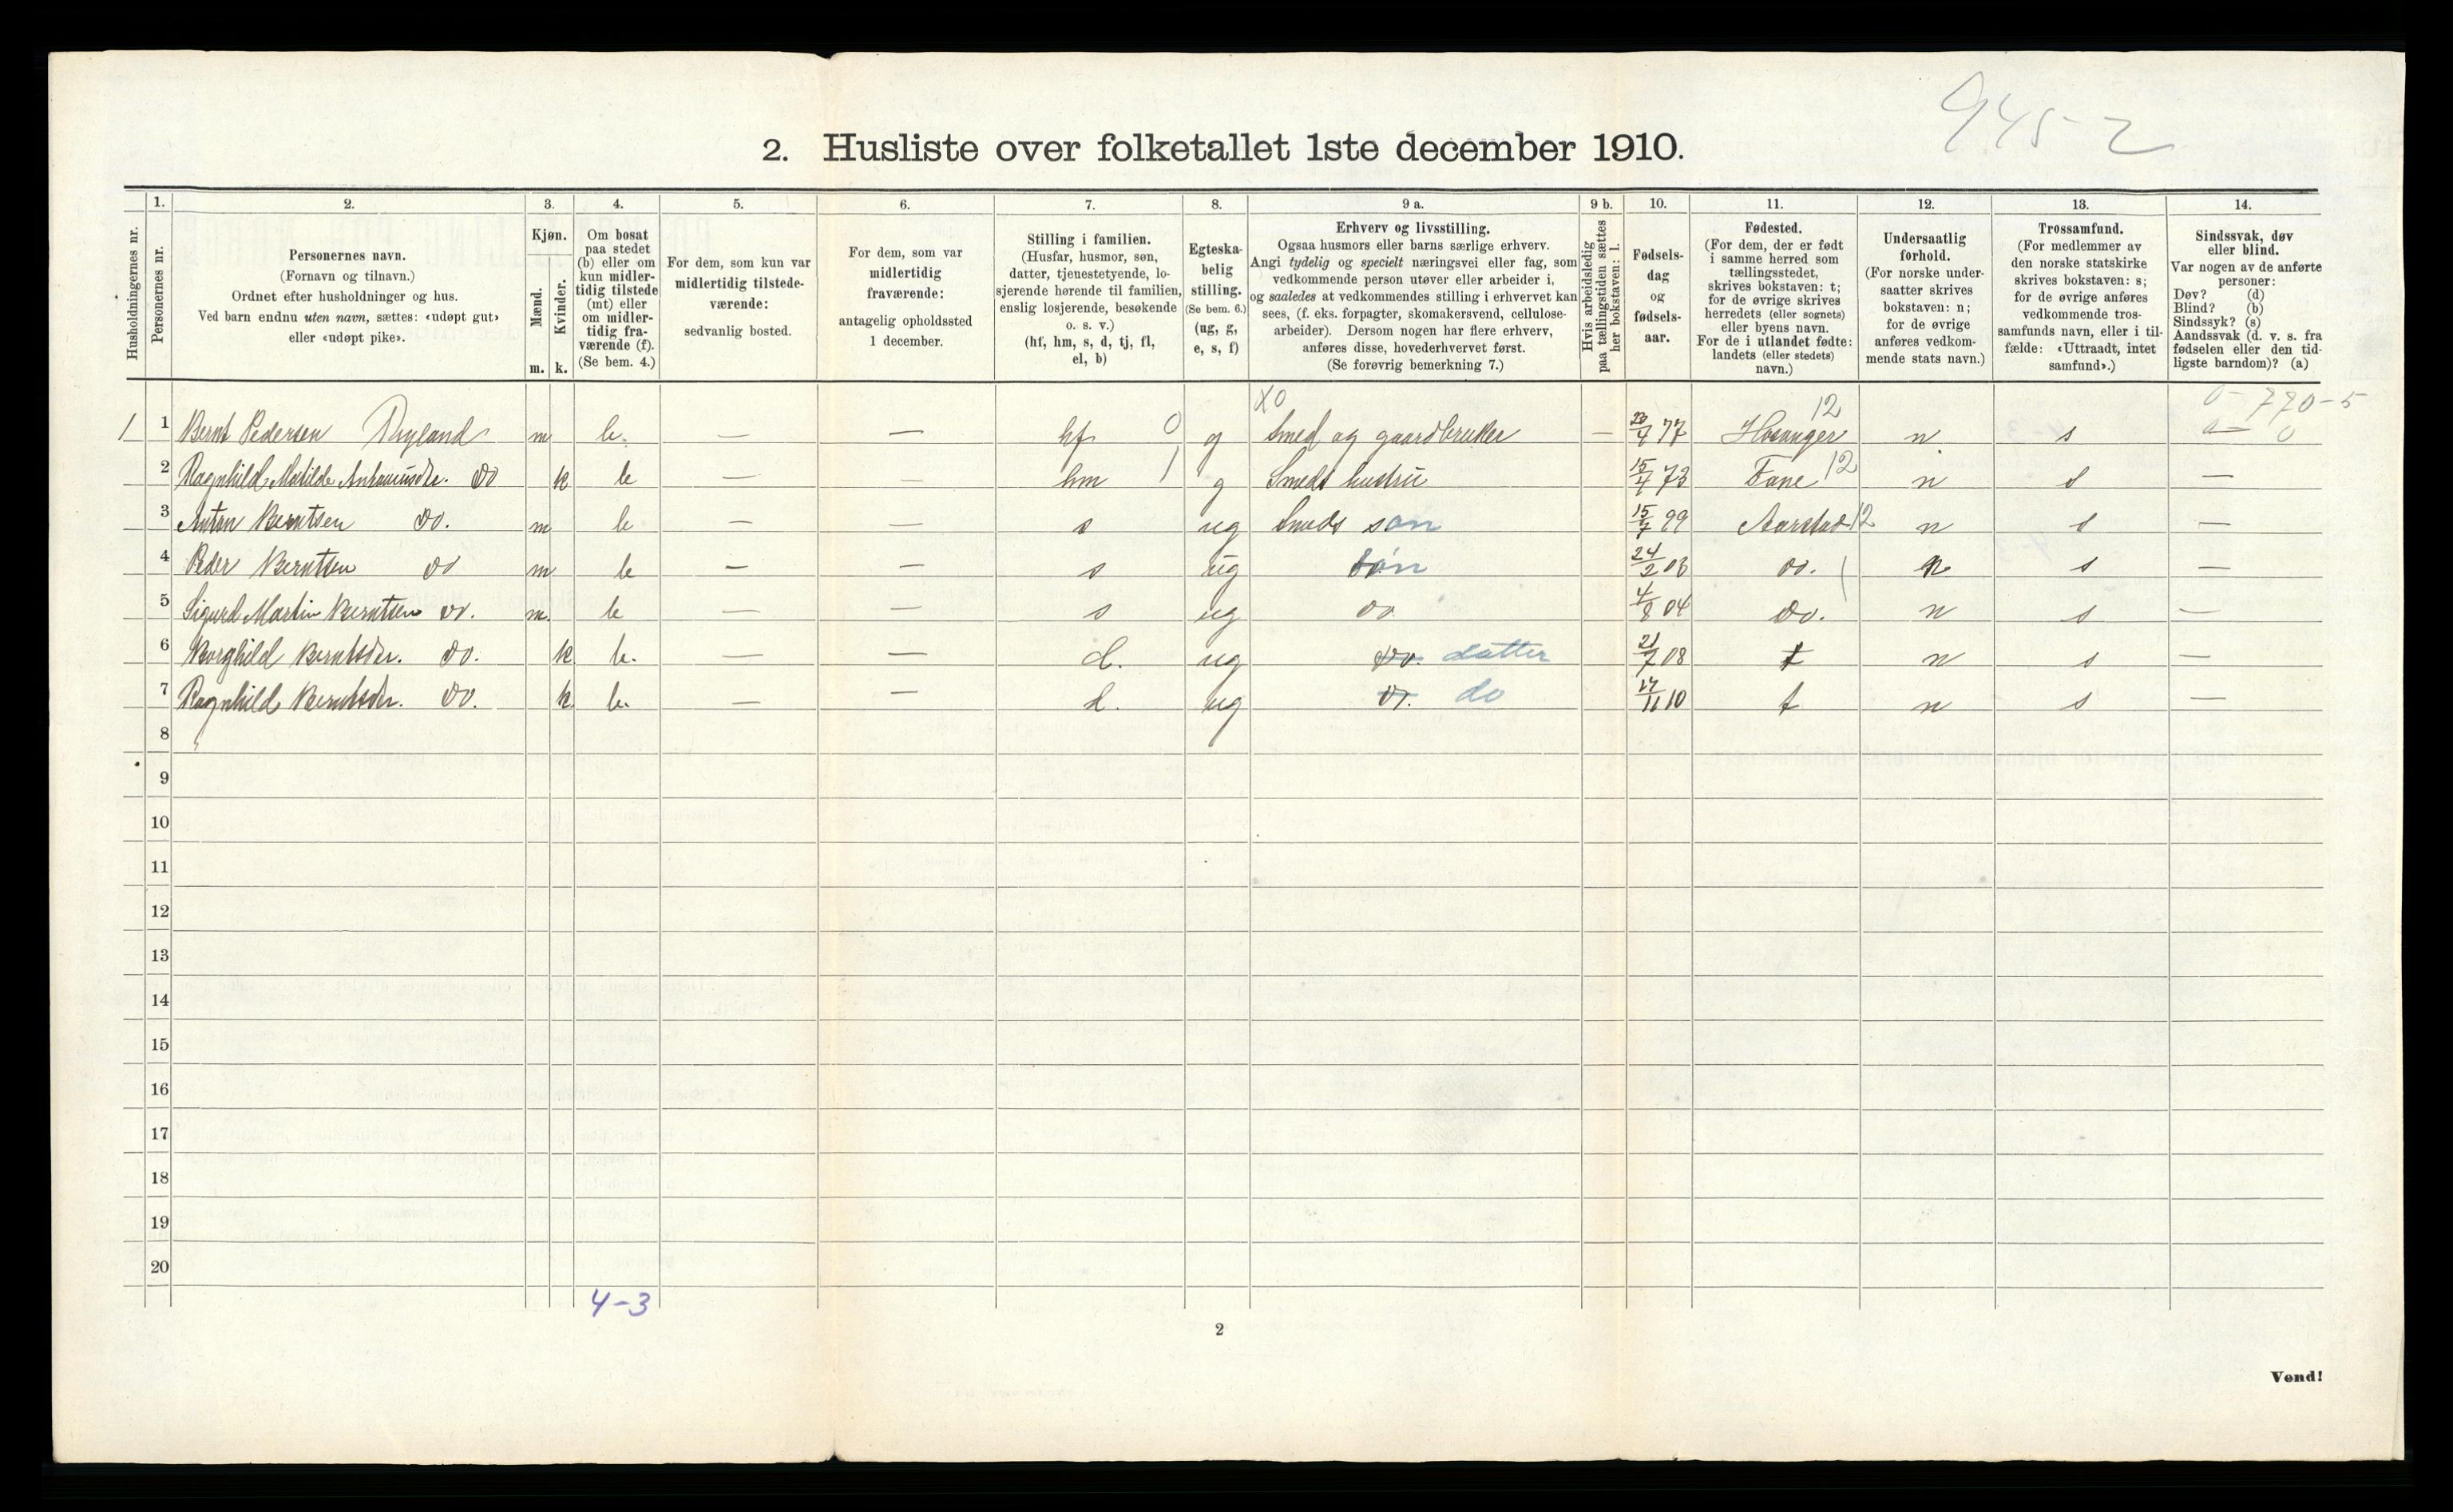 945-2
2. Husliste over folketallet 1ste december 1910.
Husholdningernes nr.
1. Personernes nr.
2. Personernes navn.
(Fornavn og tilnavn.)
Ordnet efter husholdninger og hus.
Ved barn endnu uten navn, sættes: «udøpt gut»
eller «udøpt pike».
3. Kjøn.
Mænd. m.
Kvinder. k.
4. Om bosat
paa stedet
(b) eller om
kun midler-
tidig tilstede
(mt) eller
om midler-
tidig fra-
værende (f).
(Se bem. 4.)
5. For dem, som kun var
midlertidig tilstede-
værende:
sedvanlig bosted.
6. For dem, som var
midlertidig
fraværende:
antagelig opholdssted
1 december.
7. Stilling i familien.
(Husfar, husmor, søn,
datter, tjenestetyende, lo-
sjerende hørende til familien,
enslig losjerende, besøkende
o. s. v.)
(hf, hm, s, d, tj, fl,
el, b)
8. Egteska-
belig
stilling.
(Se bem. 6.)
(ug, g,
e, s, f)
9 a. Erhverv og livsstilling.
Ogsaa husmors eller barns særlige erhverv.
Angi tydelig og specielt næringsvei eller fag, som
vedkommende person utøver eller arbeider i,
og saaledes at vedkommendes stilling i erhvervet kan
sees, (f. eks. forpagter, skomakersvend, cellulose-
arbeider). Dersom nogen har flere erhverv,
anføres disse, hovederhvervet først.
(Se forøvrig bemerkning 7.)
9 b. Hvis arbeidsledig
paa tællingstiden sættes
her bokstaven: l.
10. Fødsels-
dag
og
fødsels-
aar.
11. Fødested.
(For dem, der er født
i samme herred som
tællingsstedet,
skrives bokstaven: t;
for de øvrige skrives
herredets (eller sognets)
eller byens navn.
For de i utlandet fødte:
landets (eller stedets)
navn.)
12. Undersaatlig
forhold.
(For norske under-
saatter skrives
bokstaven: n;
for de øvrige
anføres vedkom-
mende stats navn.)
13. Trossamfund.
(For medlemmer av
den norske statskirke
skrives bokstaven: s;
for de øvrige anføres
vedkommende tros-
samfunds navn, eller i til-
fælde: «Uttraadt, intet
samfund».)
14. Sindssvak, døv
eller blind.
Var nogen av de anførte
personer:
Døv? (d)
Blind? (b)
Sindssyk? (s)
Aandssvak (d. v. s. fra
fødselen eller den tid-
ligste barndom)? (a)
X0 12 0-770-5
1 1 Bernt Pedersen Ryland m b. — — hf 0 g Smed og gaardbruker — 23/4 77 Hosanger n s a- 0
2 Ragnhild Matilde do k b — — hm 1 g Smeds hustru 15/7 73 Fane 12 n s —
3 Anton Berntsen do. m b — — s ug Smeds søn 15/7 99 Aarstad 12 n s —
4 Peder Berntsen do m b — — s ug søn 24/2 03 do. n s —
5 Sigurd Martin Berntsen do. m. b — — s ug do 4/8 04 do. n s —
6 Borghild Berntsdtr. do. k b. — — d. ug do. datter 21/7 08 t n s —
7 Ragnhild Berntsdtr. do. k. b. — — d. ug do. do 17/11 10 t n s —
8
9
10
11
12
13
14
15
16
17
18
19
20
4-3
2
Vend!